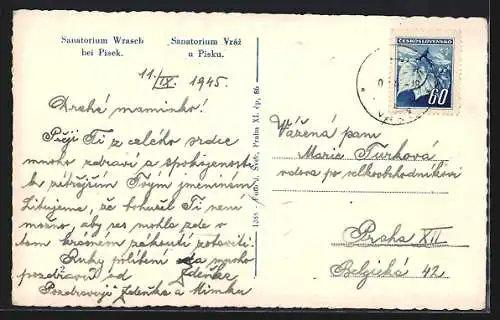 Sanatorium Wrasch
bei Pisek.
Sanatorium Vráž
u Písku.
11./IX. 1945.
Drahá maminko!
Přeji Ti z celého srdce
mnoho zdraví a spokojenosti
k zítřejším Tvým jmeninám
Litujeme, že bohužel Ti není
možno, aby ses mohla zde v
tom krásném zákoutí zotaviti.
Ruky políbení a mnoho
pozdravů od Zdeňka
Pozdravují Zdeňka a Mimka
1268 Fotogr. Šváb, Praha XI. čp. 86
ČESKOSLOVENSKO
60
Vážená paní
Marie Turková
vdova po velkoobchodníkovi
Praha XII
Belgická 42.